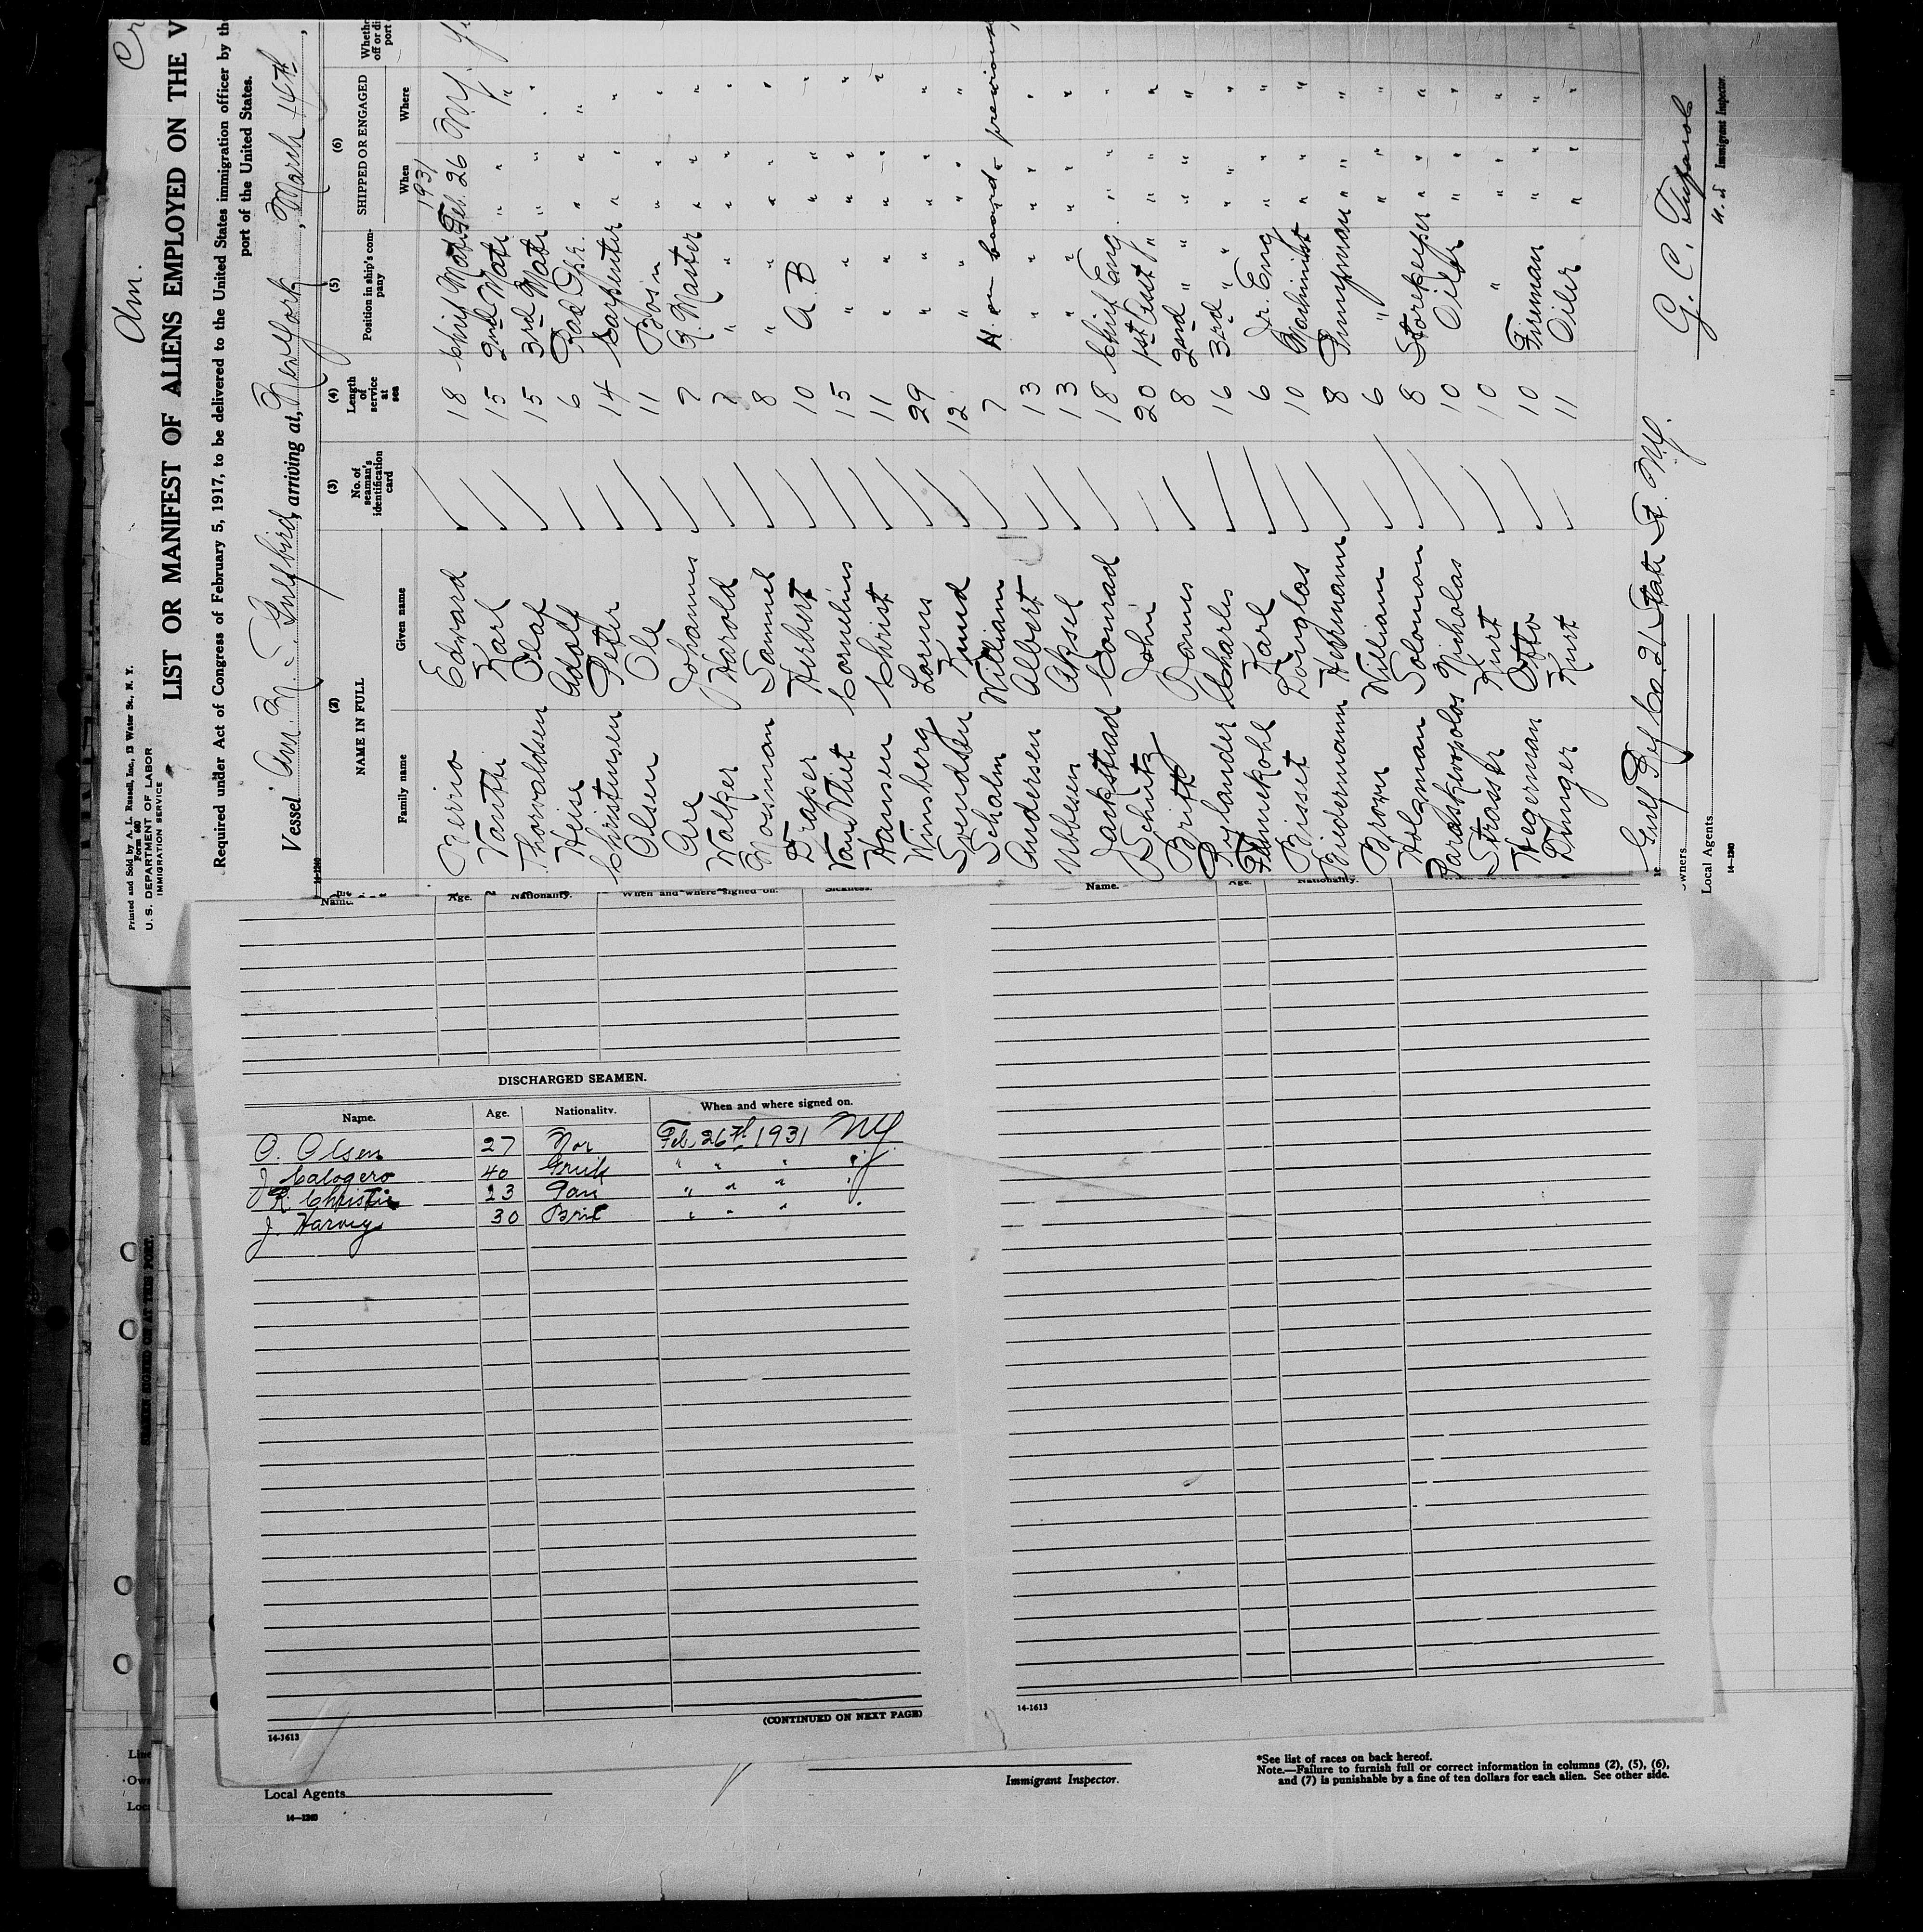 Cr
Am.
Printed and Sold by A. L. Russell, Inc., 13 Water St., N. Y.
Form 680
U. S. DEPARTMENT OF LABOR
IMMIGRATION SERVICE
LIST OR MANIFEST OF ALIENS EMPLOYED ON THE V
Required under Act of Congress of February 5, 1917, to be delivered to the United States immigration officer by the
port of the United States.
Vessel Am. M. S. Gulfbird, arriving at, New York, March 16th,
14-1240
(2) (3) (4) (5) (6)
NAME IN FULL No. of seaman's identification card Length of service at sea Position in ship's company SHIPPED OR ENGAGED Whethe
Family name Given name When Where off or di port
1931
Edward 18 Chief Mate Feb. 26 N.Y.
Karl 15 2nd Mate " " "
Thorvaldsen Olaf 15 3rd Mate " " "
Heise Adolf 6 Rad. Opr. " "
Christensen Peter 14 Carpenter " " "
Olsen Ole 11 Bosn " " "
Are Johannes 7 Q. Master " " "
Walker Harold 7 " " " "
Mosuman Samuel 8 " " " "
Draper Herbert 10 A B " " "
Van Vliet Cornelius 15 " " " "
Hansen Christ 11 " " " "
Winsberg Lorens 29 " " " "
Svendsen Knud 12 " " " "
Schalm William 7 on board previous
Andersen Albert 13 " " " "
Ubbesen Aksel 13 " " " "
Jackstead Conrad 18 Chief Eng. " " "
Schultz John 20 1st Asst " " "
Britt 8 2nd " " " "
Rylander Charles 16 3rd " " " "
Karl 6 Jr. Eng " " "
Bisset Douglas 10 Machinist " " "
Biedermann Hermann 8 Pumpman " " "
Brown William 6 " " " "
Holzman Solomon 8 Storekeeper " " "
Paraskevopolos Nicholas 10 Oiler " " "
Strasser Kurt 10 " " " "
Hegerman Otto 10 Fireman " " "
Dunger Kurt 11 Oiler " " "
Gulf Ref Co 21 State St. N.Y.
wners
Local Agents
14-1240
G. C.
U. S Immigrant Inspector.
Name. Age. Nationality. When and where signed on.
DISCHARGED SEAMEN.
Name. Age. Nationality. When and where signed on.
O. Olsen 27 Nor Feb. 26th 1931 NY
J Calogero 40 Greek " " " "
R. Christie 23 Pan " " " "
J. Harvey 30 Brit " " " "
(CONTINUED ON NEXT PAGE)
14-1613
Name. Age. Nationality.
14-1613
SEAMEN SIGNED ON AT THIS PORT.
Line
Own
Loc
Local Agents
14-1240
Immigrant Inspector.
*See list of races on back hereof.
Note.—Failure to furnish full or correct information in columns (2), (5), (6),
and (7) is punishable by a fine of ten dollars for each alien. See other side.